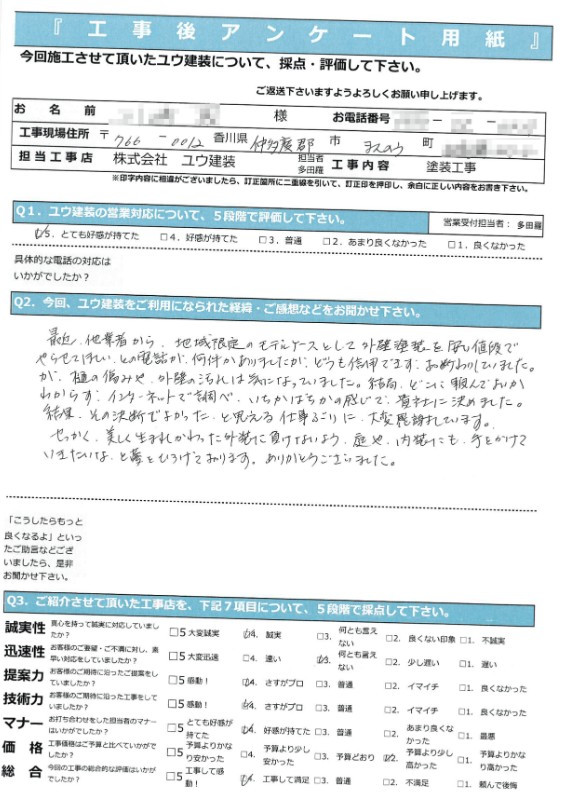 『工事後アンケート用紙』
今回施工させて頂いたユウ建装について、採点・評価して下さい。
ご返送下さいますようよろしくお願い申し上げます。
お名前 様 お電話番号
工事現場住所 〒766-0012 香川県 仲多度郡 市 まんのう 町
担当工事店 株式会社 ユウ建装 担当者 多田羅 工事内容 塗装工事
※印字内容に相違がございましたら、訂正箇所に二重線を引いて、訂正印を押印し、余白に正しい内容をお書き下さい。
Q1.ユウ建装の営業対応について、5段階で評価して下さい。 営業受付担当者：多田羅
☑5.とても好感が持てた □4.好感が持てた □3.普通 □2.あまり良くなかった □1.良くなかった
具体的な電話の対応は
いかがでしたか？
Q2.今回、ユウ建装をご利用になられた経緯・ご感想などをお聞かせ下さい。
最近、他業者から、地域限定のモデルケースとして外壁塗装を安い値段で
やらせてほしい、との電話が、何件かありましたが、どうも信用できず、お断わりしていました。
が、樋の傷みや、外壁の汚れは気になっていました。結局、どこに頼んでよいか
わからず、インターネットで調べ、いちかばちかの感じで、貴社に決めました。
結果、その決断でよかった、と思える仕事ぶりに、大変感謝しています。
せっかく、美しく生まれかわった外装に負けないよう、庭や、内装にも、手をかけて
いきたいな、と夢をひろげております。ありがとうございました。
「こうしたらもっと
良くなるよ」といっ
たご助言などござ
いましたら、是非
お聞かせ下さい。
Q3.ご紹介させて頂いた工事店を、下記7項目について、5段階で採点して下さい。
誠実性 真心を持って誠実に対応していましたか？ □5大変誠実 ☑4.誠実 □3.何とも言えない □2.良くない印象 □1.不誠実
迅速性 お客様のご要望・ご不満に対し、素早い対応をしていましたか？ □5大変迅速 □4.速い ☑3.何とも言えない □2.少し遅い □1.遅い
提案力 お客様のご期待に沿ったご提案をしていましたか？ □5感動！ ☑4.さすがプロ □3.普通 □2.イマイチ □1.良くなかった
技術力 お客様のご期待に沿った工事をしていましたか？ □5感動！ ☑4.さすがプロ □3.普通 □2.イマイチ □1.良くなかった
マナー お打ち合わせをした担当者のマナーはいかがでしたか？ □5とても好感が持てた ☑4.好感が持てた □3.普通 □2.あまり良くなかった □1.最悪
価格 工事価格はご予算と比べていかがでしたか？ □5予算よりかなり安かった □4.予算より少し安かった □3.予算どおり ☑2.予算より少し高かった □1.予算よりかなり高かった
総合 今回の工事の総合的な評価はいかがでしたか？ □5工事して感動！ ☑4.工事して満足 □3.普通 □2.不満足 □1.頼んで後悔